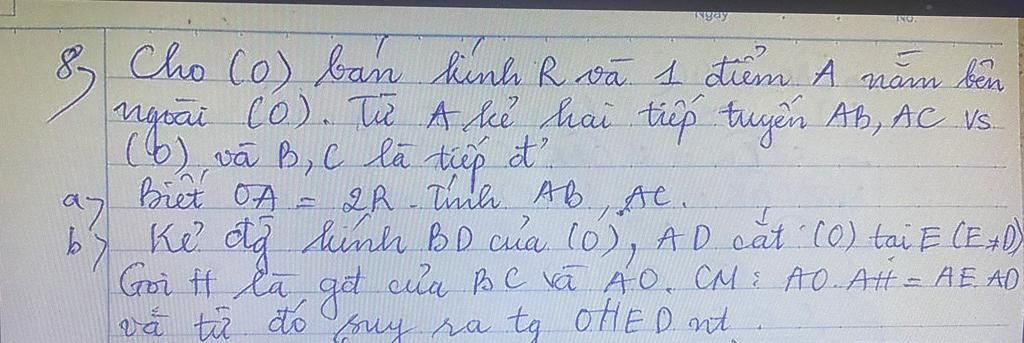 Ngày No.
8) Cho (O) bán kính R và 1 điểm A nằm bên
ngoài (O). Từ A kẻ hai tiếp tuyến AB, AC vs
(O) và B, C là tiếp đ'
a) Biết OA = 2R. Tính AB, AC.
b) Kẻ đg kính BD của (O), AD cắt (O) tại E (E≠D)
Gọi H là gđ của BC và AO. CM: AO.AH = AE.AD
và từ đó suy ra tg OHED nt.